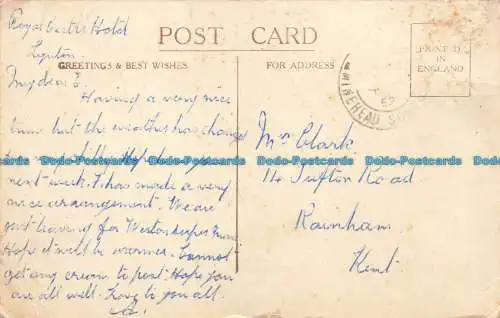 Royal Castle Hotel
Lynton.
POST CARD
GREETINGS & BEST WISHES
FOR ADDRESS
PRINTED
IN
ENGLAND
MINEHEAD
52
My dear E.
Having a very nice
time but the weather has changed
to very
next week. has made a very
nice arrangement. We are
just leaving for Weston
Hope it will be warmer. Cannot
get any cream to post. Hope you
are all well. Love to you all.
Mrs Clark.
14 Tufton Road
Rainham.
Kent.
www.bidstobuy-postcards.com
www.bidstobuy-postcards.com
www.bidstobuy-postcards.com